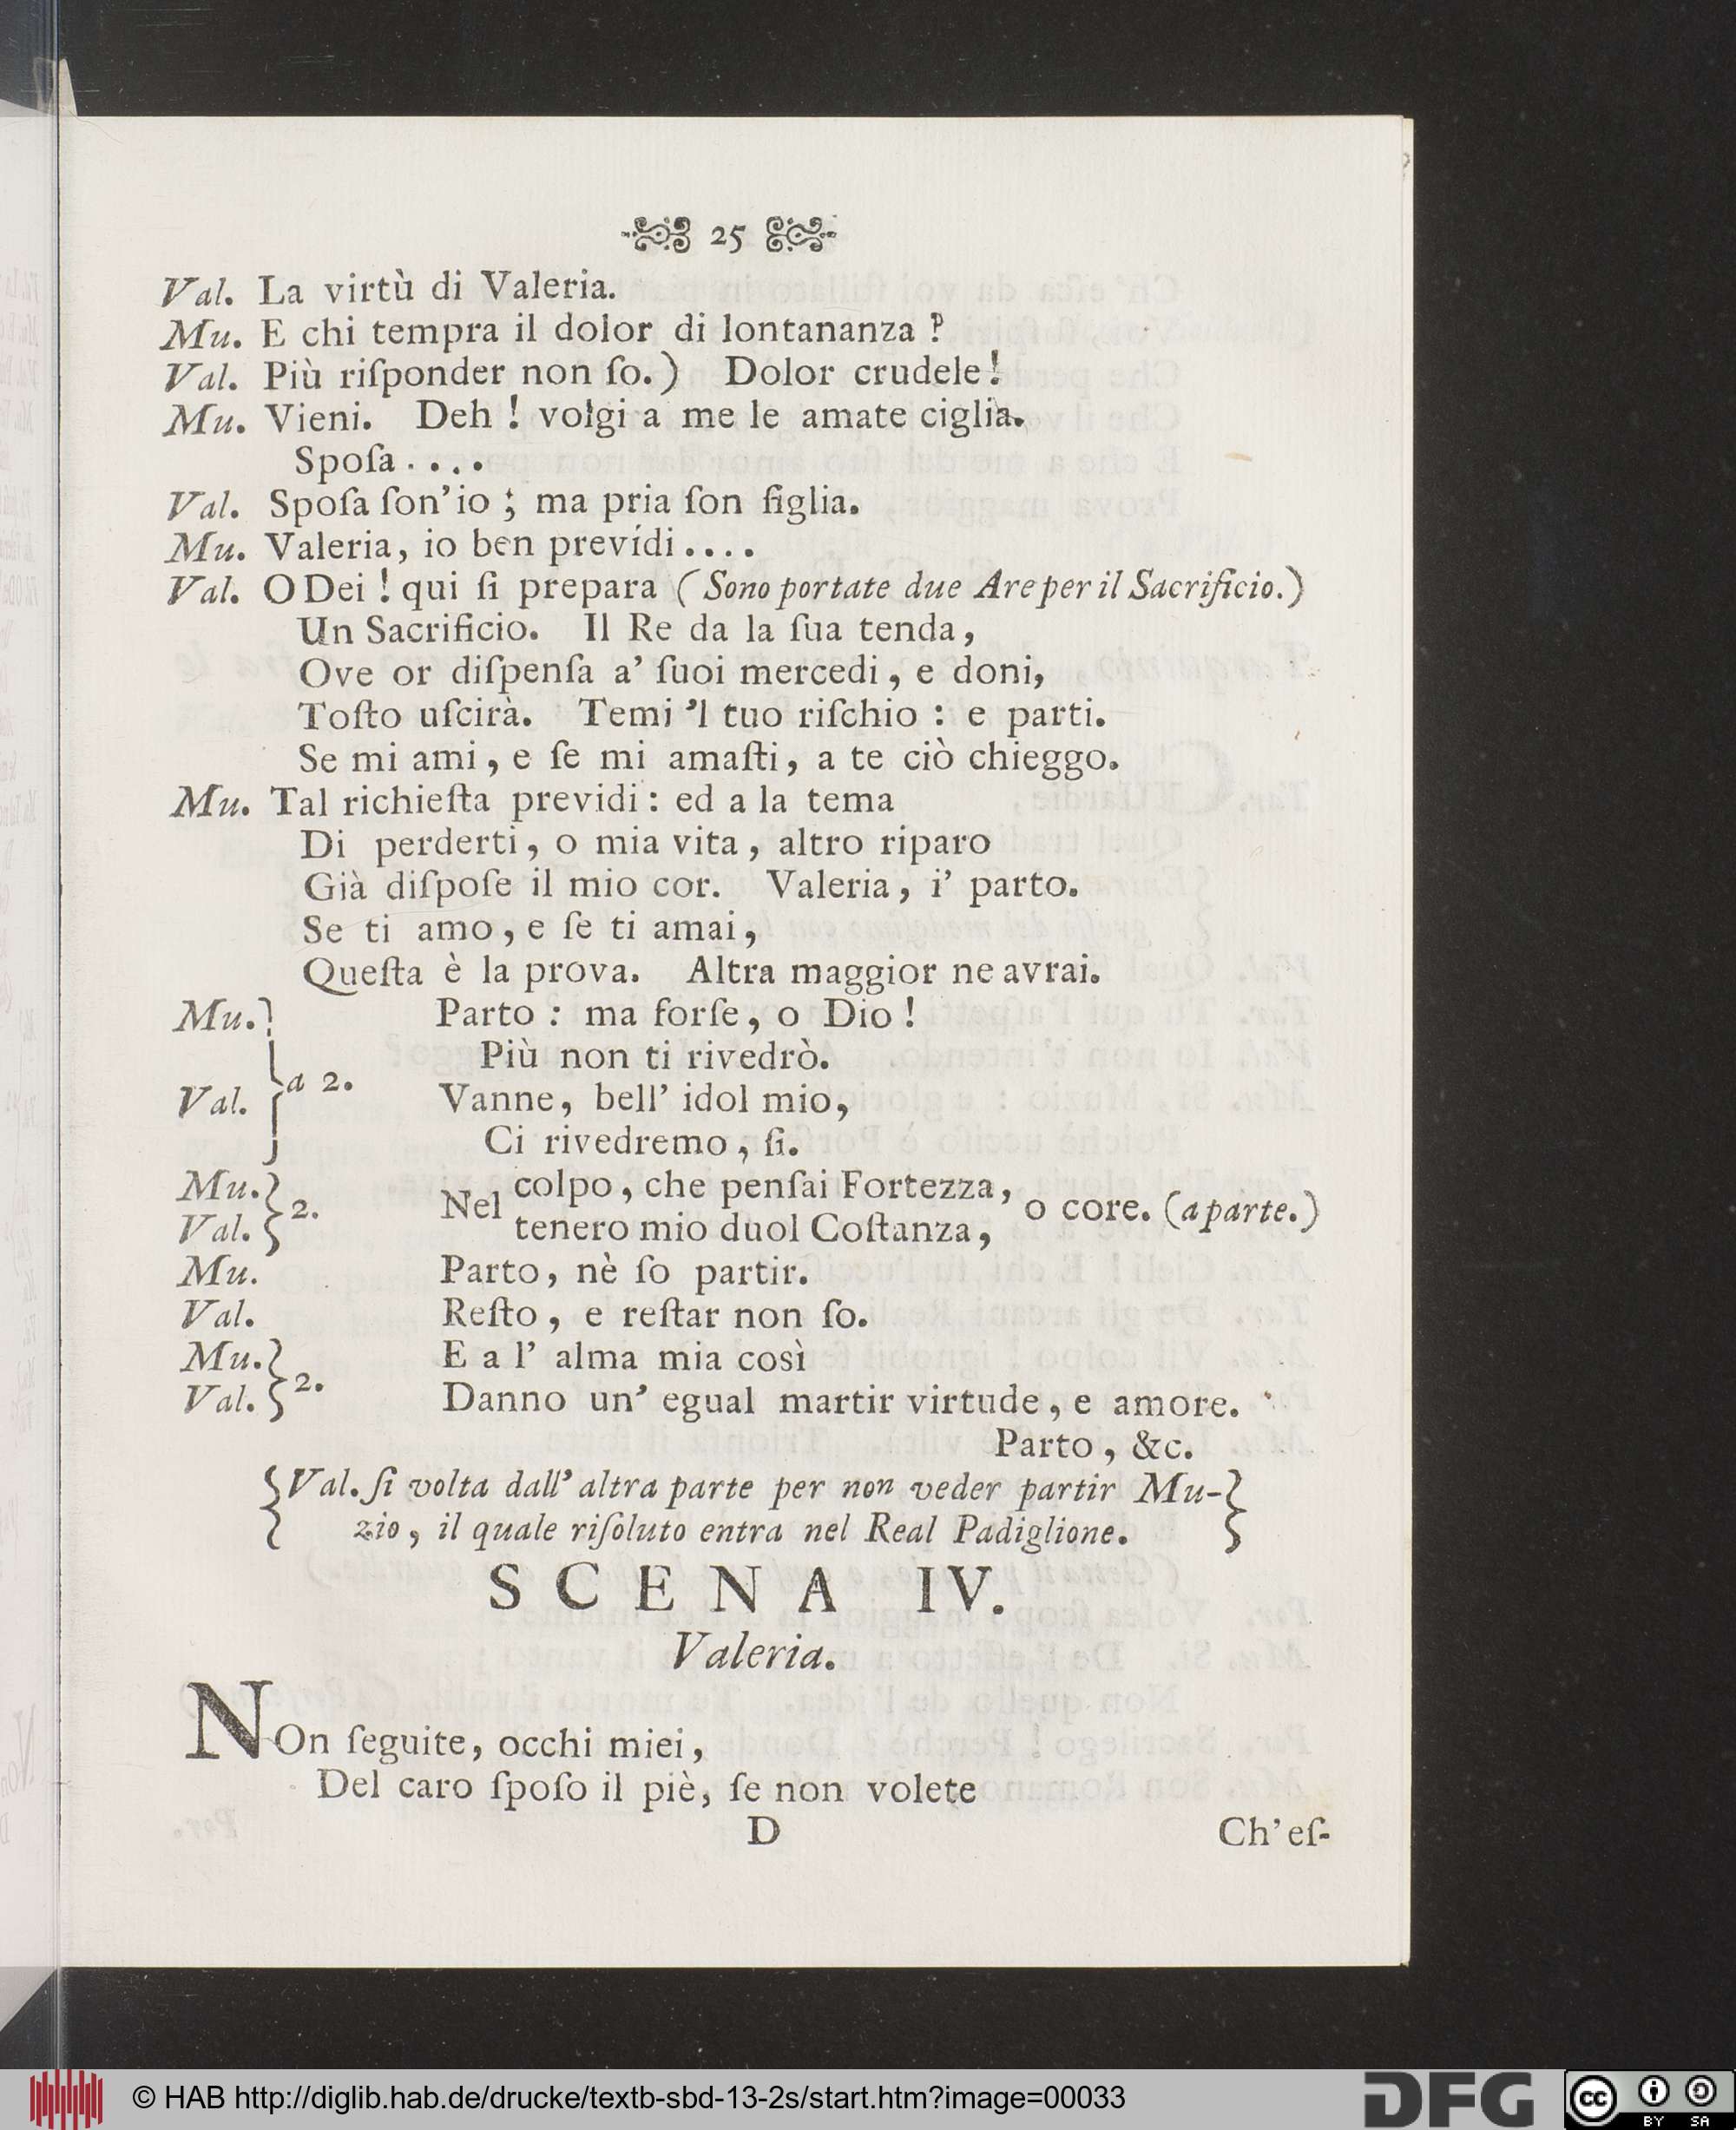 25
Val. La virtù di Valeria.
Mu. E chi tempra il dolor di lontananza ?
Val. Più riſponder non ſo.) Dolor crudele!
Mu. Vieni. Deh ! volgi a me le amate ciglia.
Spoſa . . . .
Val. Spoſa ſon' io ; ma pria ſon figlia.
Mu. Valeria, io ben prevídi . . . .
Val. O Dei ! qui ſi prepara ( Sono portate due Are per il Sacrificio.)
Un Sacrificio. Il Re da la ſua tenda,
Ove or diſpenſa a' ſuoi mercedi, e doni,
Toſto uſcirà. Temi 'l tuo riſchio : e parti.
Se mi ami, e ſe mi amaſti, a te ciò chieggo.
Mu. Tal richieſta previdi : ed a la tema
Di perderti, o mia vita, altro riparo
Già diſpoſe il mio cor. Valeria, i' parto.
Se ti amo, e ſe ti amai,
Queſta è la prova. Altra maggior ne avrai.
Mu. } Parto : ma forſe, o Dio !
Più non ti rivedrò.
Val. } a 2. Vanne, bell' idol mio,
Ci rivedremo, ſi.
Mu. } 2. Nel colpo, che penſai Fortezza, o core. (a parte.)
Val. } tenero mio duol Coſtanza,
Mu. Parto, nè ſo partir.
Val. Reſto, e reſtar non ſo.
Mu. } 2. E a l' alma mia così
Val. } Danno un' egual martir virtude, e amore.
Parto, &c.
{ Val. ſi volta dall' altra parte per non veder partir Mu- }
zio, il quale riſoluto entra nel Real Padiglione.
SCENA IV.
Valeria.
NOn ſeguite, occhi miei,
Del caro ſpoſo il piè, ſe non volete
D Ch' eſ-
© HAB http://diglib.hab.de/drucke/textb-sbd-13-2s/start.htm?image=00033
DFG
cc BY SA